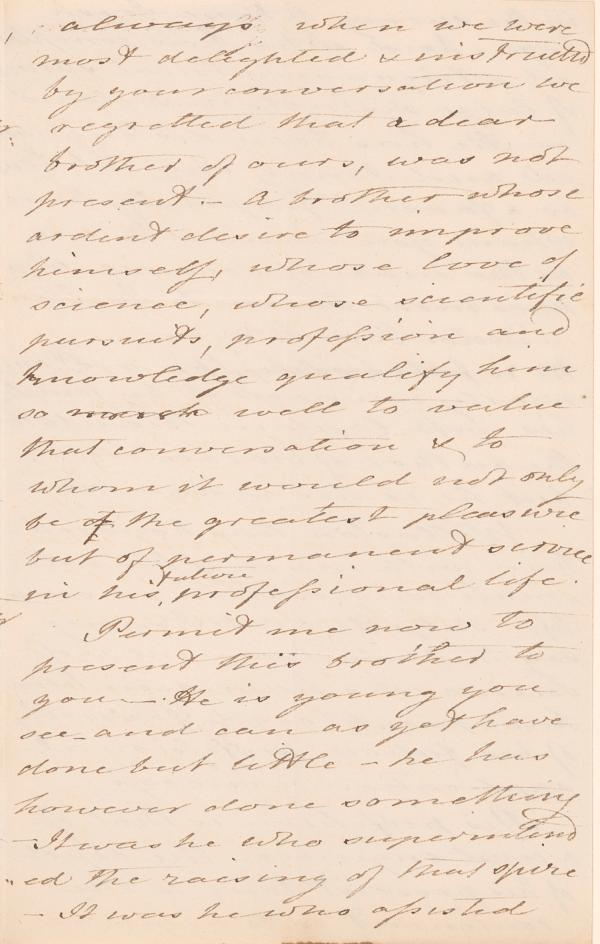 always when we were
most delighted & instructed
by your conversation we
regretted that a dear
brother of ours, was not
present. – A brother whose
ardent desire to improve
himself, whose love of
science, whose scientific
pursuits, profession and
knowledge qualify him
so much well to value
that conversation & to
whom it would not only
be of the greatest pleasure
but of permanent service
in his future professional life.
Permit me now to
present this brother to
you – He is young you
see – and can as yet have
done but little – he has
however done something
– It was he who superintend
"ed the raising of that spire
– It was he who assisted